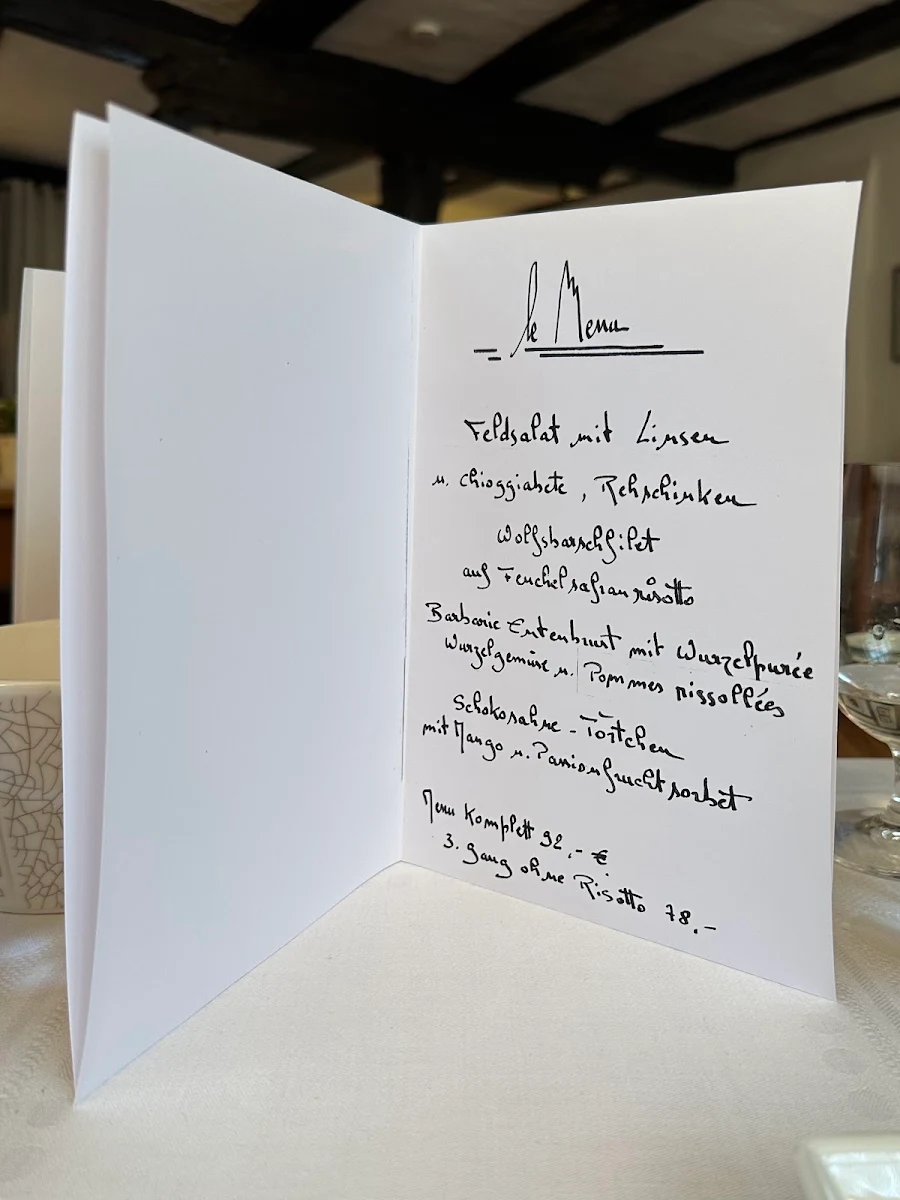 le Menu
Feldsalat mit Linsen
u. Chioggiabete, Rehschinken
Wolfsbarschfilet
auf Fenchelsafranrisotto
Barbarie Entenbrust mit Wurzelpurée
Wurzelgemüse u. Pommes rissollées
Schokosahne-Törtchen
mit Mango u. Passionsfruchtsorbet
Menu Komplett 92,- €
3. gang ohne Risotto 78,-